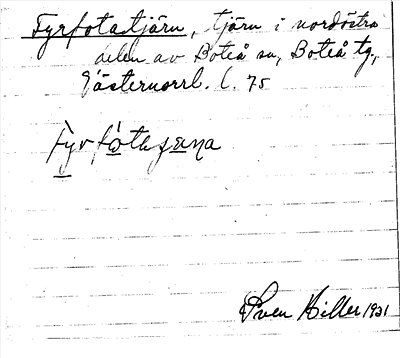 Fyrfotastjärn, tjärn i nordöstra
delen av Boteå sn, Boteå tg,
Västernorrl. l. 75
Sven Hiller 1931